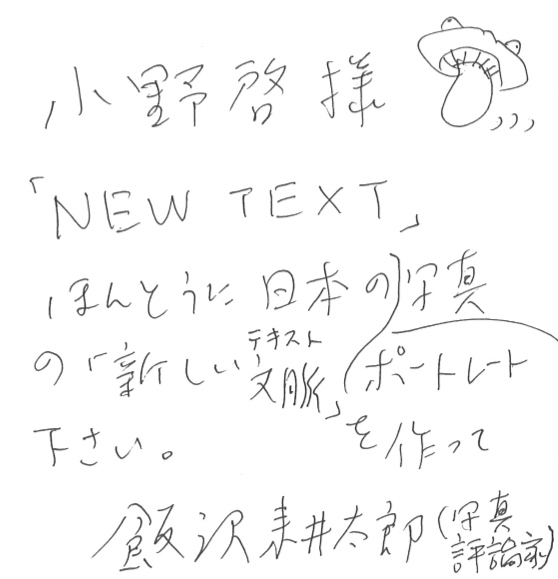 小野啓様
「NEW TEXT」
ほんとうに日本の写真
ポートレート
の「新しい文脈」を作って
テキスト
下さい。
飯沢耕太郎(写真
評論家)